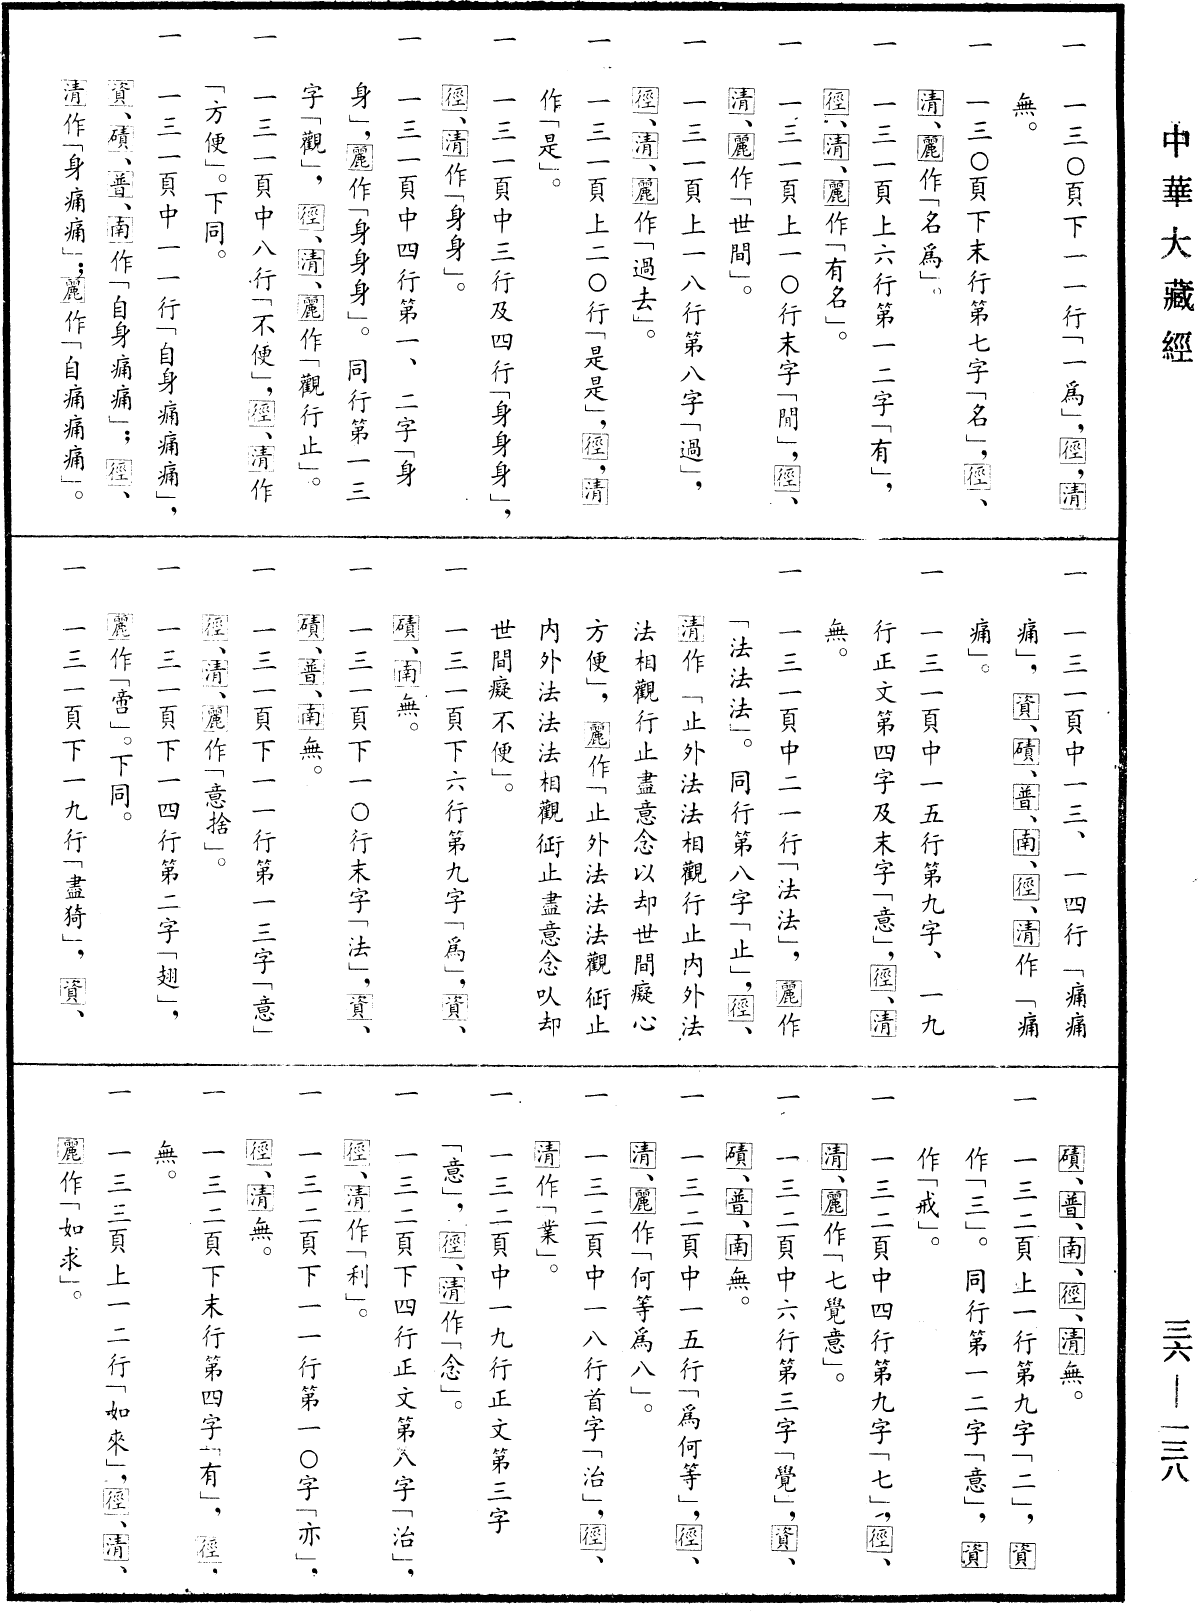 中華大藏經
一　一三〇頁下一一行「一爲」，徑，清
無。
一　一三〇頁下末行第七字「名」，徑、
清、麗作「名爲」。
一　一三一頁上六行第一二字「有」，
徑、清、麗作「有名」。
一　一三一頁上一〇行末字「間」，徑、
清、麗作「世間」。
一　一三一頁上一八行第八字「過」，
徑、清、麗作「過去」。
一　一三一頁上二〇行「是是」，徑，清
作「是」。
一　一三一頁中三行及四行「身身身」，
徑、清作「身身」。
一　一三一頁中四行第一、二字「身
身」，麗作「身身身」。同行第一三
字「觀」，徑、清、麗作「觀行止」。
一　一三一頁中八行「不便」，徑、清作
「方便」。下同。
一　一三一頁中一一行「自身痛痛痛」，
資、磧、普、南作「自身痛痛」；徑、
清作「身痛痛」；麗作「自痛痛痛」。
一　一三一頁中一三、一四行「痛痛
痛」，資、磧、普、南、徑、清作「痛
痛」。
一　一三一頁中一五行第九字、一九
行正文第四字及末字「意」，徑、清
無。
一　一三一頁中二一行「法法」，麗作
「法法法」。同行第八字「止」，徑、
清作「止外法法相觀行止内外法
法相觀行止盡意念以却世間癡心
方便」，麗作「止外法法法觀㣔止
内外法法法相觀㣔止盡意念㕥却
世間癡不便」。
一　一三一頁下六行第九字「爲」，資、
磧、南無。
一　一三一頁下一〇行末字「法」，資、
磧、普、南無。
一　一三一頁下一一行第一三字「意」
徑、清、麗作「意捨」。
一　一三一頁下一四行第二字「翅」，
麗作「啻」。下同。
一　一三一頁下一九行「盡猗」，資、
磧、普、南、徑、清無。
一　一三二頁上一行第九字「二」，資
作「三」。同行第一二字「意」，資
作「戒」。
一　一三二頁中四行第九字「七」，徑、
清、麗作「七覺意」。
一　一三二頁中六行第三字「覺」，資、
磧、普、南無。
一　一三二頁中一五行「爲何等」，徑、
清、麗作「何等爲八」。
一　一三二頁中一八行首字「治」，徑、
清作「業」。
一　一三二頁中一九行正文第三字
「意」，徑、清作「念」。
一　一三二頁下四行正文第八字「治」，
徑、清作「利」。
一　一三二頁下一一行第一〇字「亦」，
徑、清無。
一　一三二頁下末行第四字「有」，徑．
無。
一　一三三頁上一二行「如來」，徑、清、
麗作「如求」。
三六—一三八